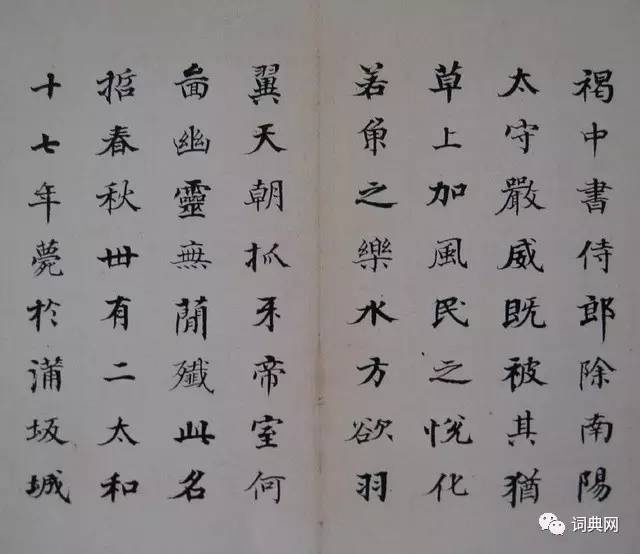 褐中書侍郎除南陽
太守嚴威既被其猶
草上加風民之悅化
若魚之樂水方欲羽
翼天朝抓牙帝室何
啚幽靈無簡殲此名
哲春秋卅有二太和
十七年薨於蒲坂城
词典网